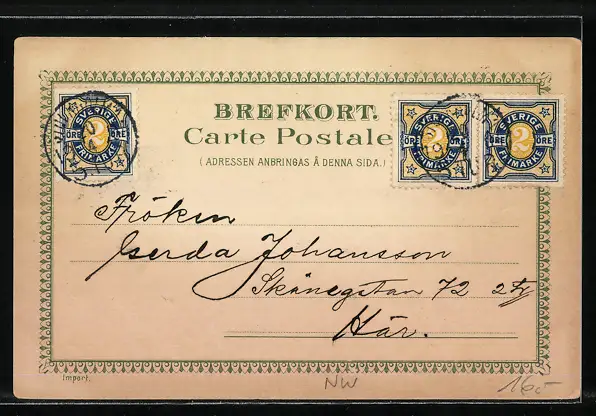 SVERIGE
2
ÖRE ÖRE
FRIMÄRKE
BREFKORT.
Carte Postale
( ADRESSEN ANBRINGAS Å DENNA SIDA. )
SVERIGE
2
ÖRE ÖRE
FRIMÄRKE
SVERIGE
2
ÖRE ÖRE
FRIMÄRKE
Fröken
Gerda Johansson
Skånegatan 72
Här.
Import.
NW
16.-